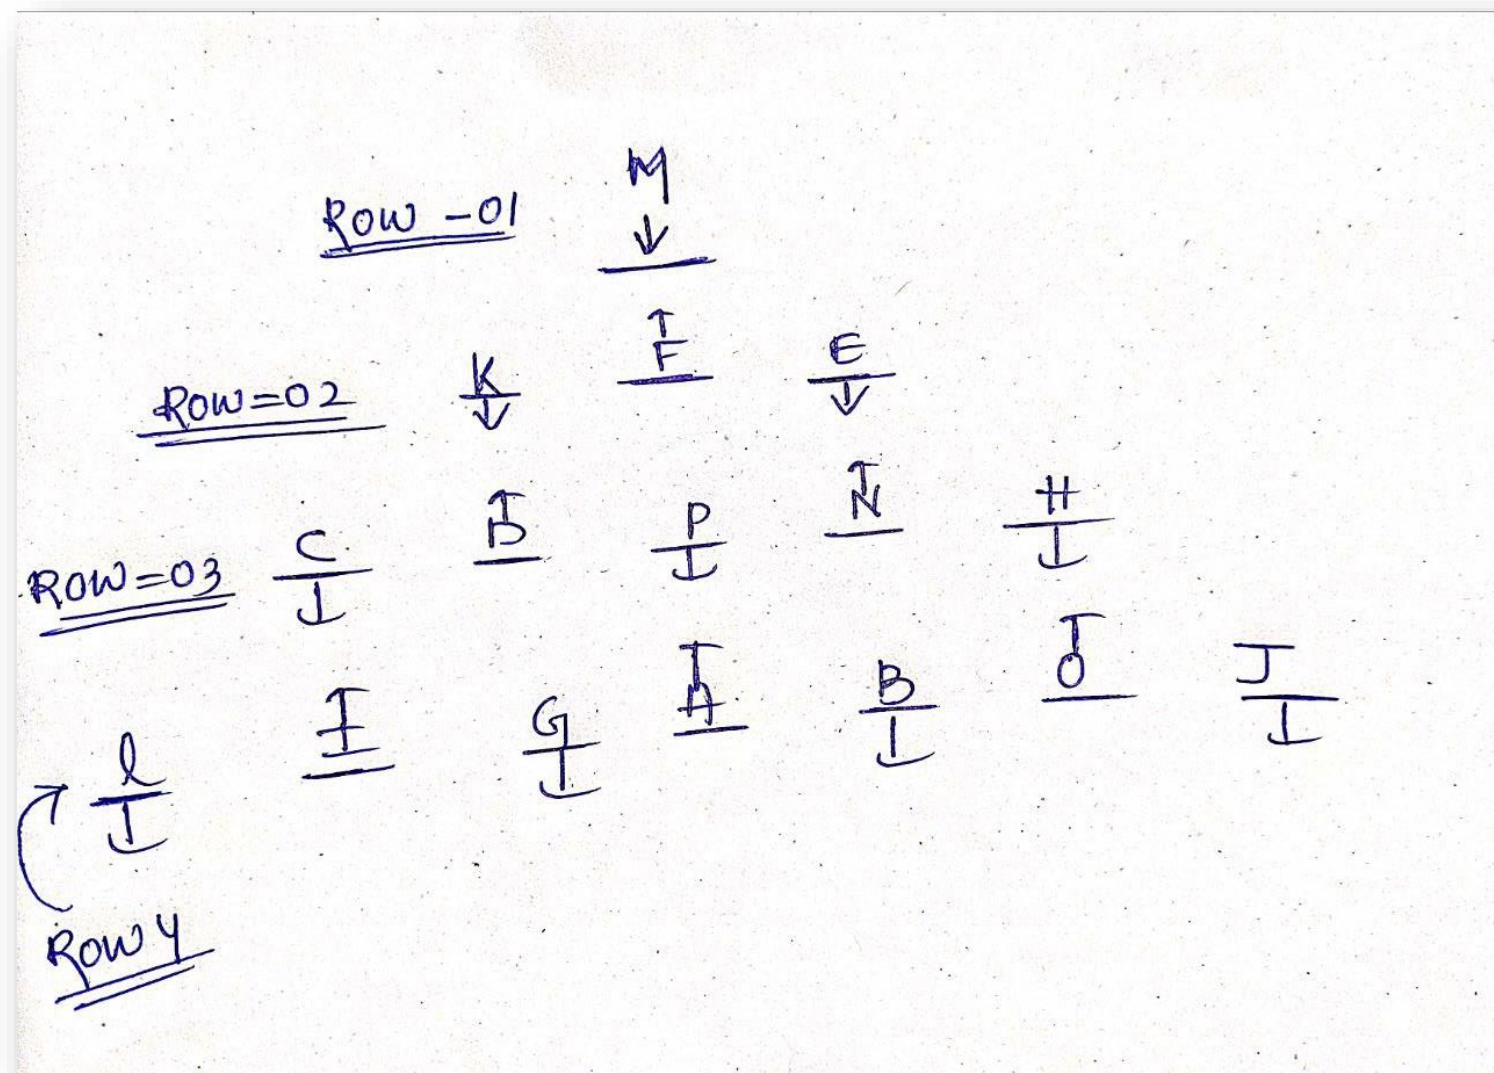 ROW -01 M
ROW=02 K F E
ROW=03 C D P N H
l I G A B O J
ROW 4